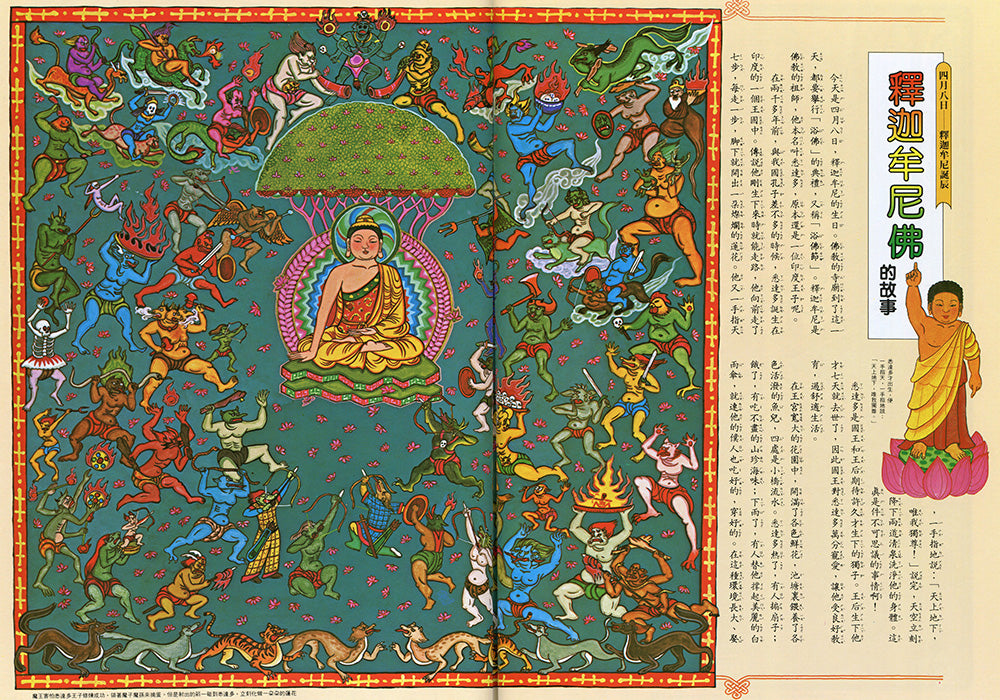 四月八日——釋迦牟尼誕辰
釋迦牟尼佛
的故事
今天是四月八日,釋迦牟尼的生日。佛教的寺廟到了這一
天,都要舉行「浴佛」的典禮,又稱「浴佛節」。釋迦牟尼是
佛教的祖師,他本名叫悉達多,原本還是一位印度王子呢。
在兩千多年前,與我國孔子差不多的時候,悉達多誕生在
印度的一個王國中。傳說他剛生下來時就能走路,他向前走了
七步,每走一步,腳下就開出一朵燦爛的蓮花。他又一手指天
,一手指地說:「天上地下,
唯我獨尊!」說完,天空立刻
降下兩道清泉洗淨他的身體。這
真是件不可思議的事情啊!
悉達多出生,便
一手指天,一手指地說:
「天上地下,唯我獨尊。」
悉達多是國王和王后期待許久才生下的獨子。王后生下他
才七天就去世了,因此國王對悉達多萬分寵愛,讓他受良好教
育,過舒適生活。
在王宮寬大的花園中,開滿了各色鮮花,池塘裏餵養了各
色活潑的魚兒,四處是小橋流水。悉達多熱了,有人搧扇子;
餓了,有吃不盡的山珍海味;下雨了,有人替他撐起美麗的白
雨傘,就連他的僕人也吃好的、穿好的。在這種環境長大、娶
魔王害怕悉達多王子修練成功,領著魔子魔孫來搗蛋,但是射出的箭一碰到悉達多,立刻化做一朵朵的蓮花